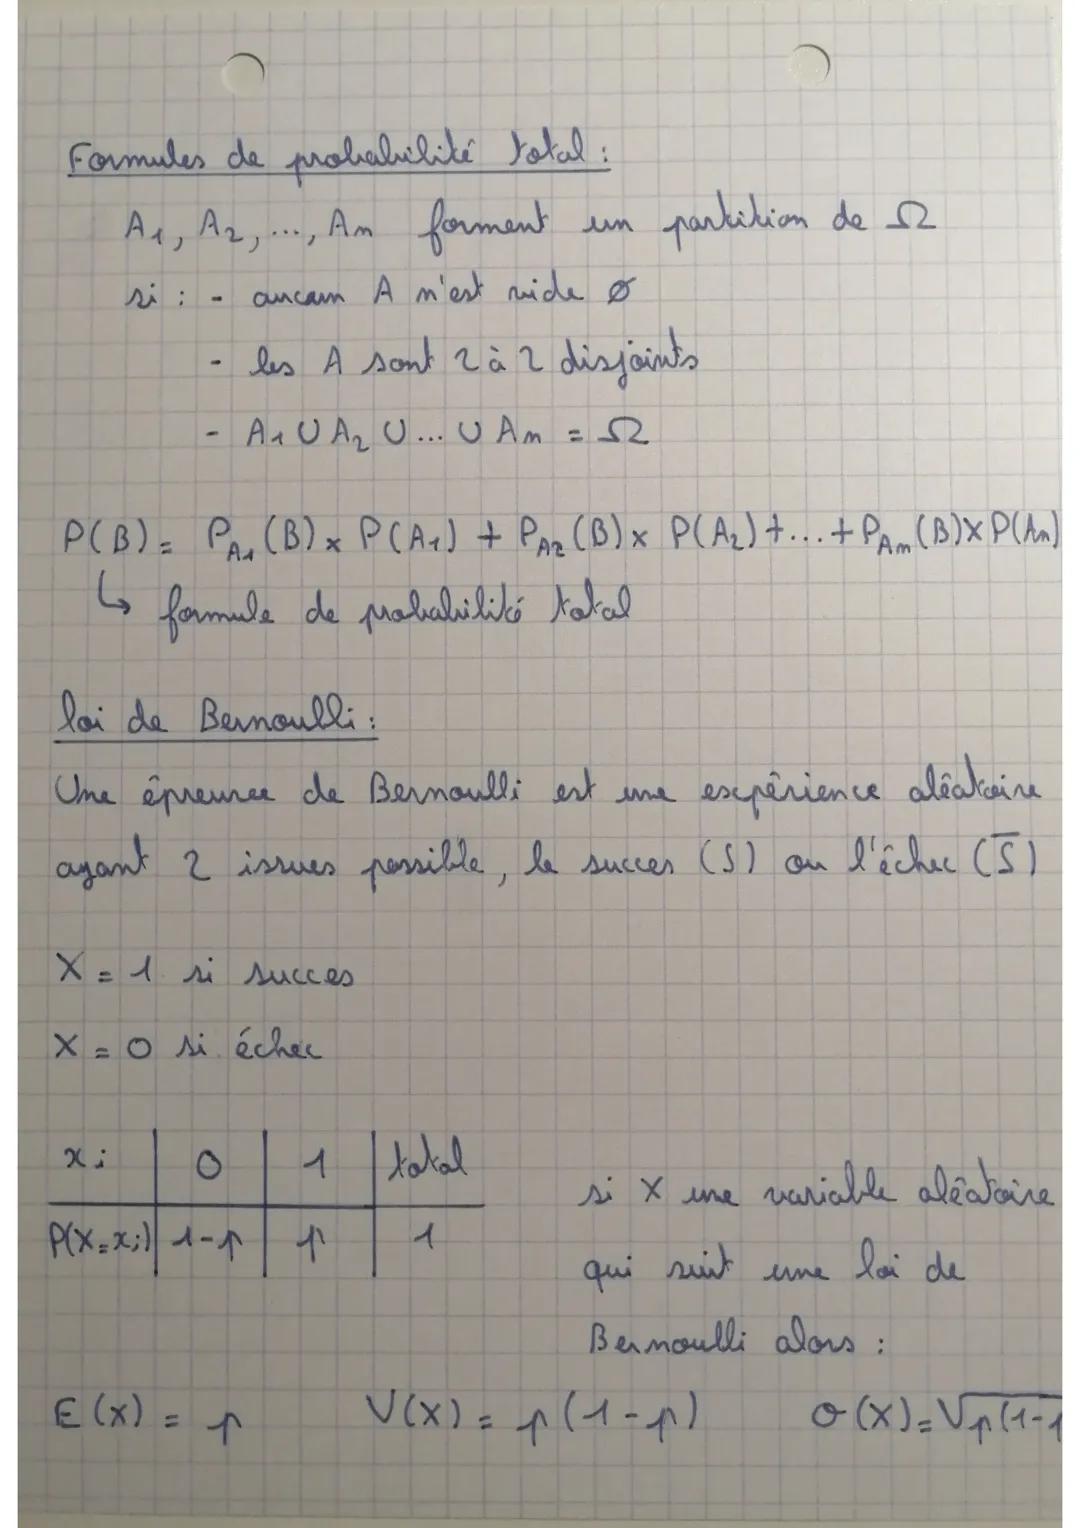 Formules de probabilité total :
A1, A2, ..., An forment un partition de Ω
si : - aucun A n'est vide ∅
- les A sont 2 à 2 disjoints
- A1 ∪ A2 ∪ ... ∪ An = Ω
P(B) = PA1(B) × P(A1) + PA2(B) × P(A2) + ... + PAn(B) × P(An)
↳ formule de probabilité total
loi de Bernoulli :
Une épreuve de Bernoulli est une expérience aléatoire
ayant 2 issues possible, le succes (S) ou l'échec (S̅)
X = 1 si succes
X = 0 si échec
xi | 0 | 1 | total
P(X=xi) | 1-p | p | 1
si X une variable aléatoire
qui suit une loi de
Bernoulli alors :
E(X) = p V(X) = p(1-p) σ(X) = √p(1-